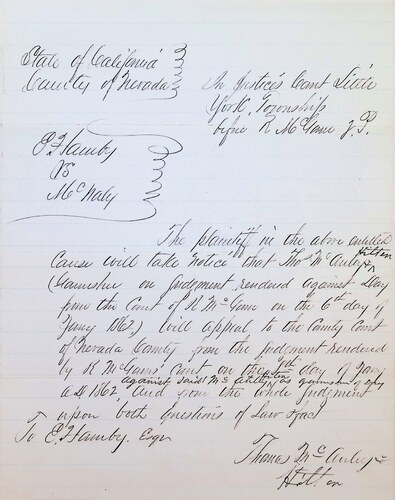 State of California
County of Nevada
In Justice's Court Little
York Township
before R McGann J.P.
E. Hamby
vs
McNaly
The plaintiff in the above entitled
Cause will take notice that Thos McAuley & Hilton
(Garnishee on judgment rendered against
from the Court of R McGann on the 6th day of
Jany 1862,) will appeal to the County Court
of Nevada County from the judgment rendered
by R McGann's Court on the 9th day of Jany
AD 1862, against said McAuley & Hilton as garnishee of
And from the whole Judgment
upon both questions of Law & fact
To E. Hamby. Esqr
Thomas McAuley &
Hilton